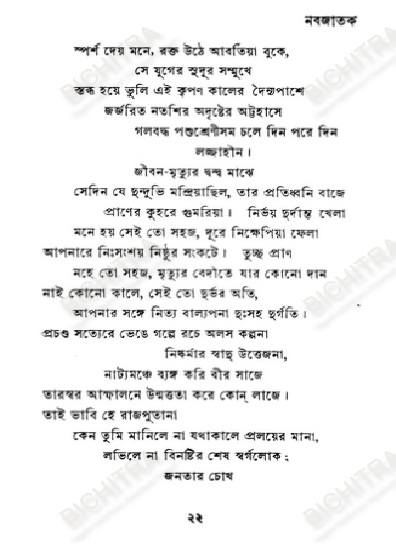 নবজাতক
স্পর্শ দেয় মনে, রক্ত উঠে আবর্তিয়া বুকে,
সে যুগের সুদূর সম্মুখে
স্তব্ধ হয়ে ভুলি এই কৃপণ কালের দৈন্যপাশে
জর্জরিত নতশির অদৃষ্টের অট্টহাসে
গলবদ্ধ পশুশ্রেণীসম চলে দিন পরে দিন
লজ্জাহীন।
জীবন-মৃত্যুর দ্বন্দ্ব মাঝে
সেদিন যে দুন্দুভি মন্দ্রিয়াছিল, তার প্রতিধ্বনি বাজে
প্রাণের কুহরে গুমরিয়া। নির্ভয় দুর্দান্ত খেলা
মনে হয় সেই তো সহজ, দূরে নিক্ষেপিয়া ফেলা
আপনারে নিঃসংশয় নিষ্ঠুর সংকটে। তুচ্ছ প্রাণ
নহে তো সহজ, মৃত্যুর বেদীতে যার কোনো দান
নাই কোনো কালে, সেই তো দুর্ভর অতি,
আপনার সঙ্গে নিত্য বাল্যপনা দুঃসহ দুর্গতি।
প্রচণ্ড সত্যেরে ভেঙে গল্পে রচে অলস কল্পনা
নিষ্কর্মার স্বাদু উত্তেজনা,
নাট্যমঞ্চে ব্যঙ্গ করি বীর সাজে
তারস্বর আস্ফালনে উন্মত্ততা করে কোন্ লাজে।
তাই ভাবি হে রাজপুতানা
কেন তুমি মানিলে না যথাকালে প্রলয়ের মানা,
লভিলে না বিনষ্টির শেষ স্বর্গলোক;
জনতার চোখ
২২
BICHITRA
BICHITRA
BICHITRA
BICHITRA
BICHITRA
BICHITRA